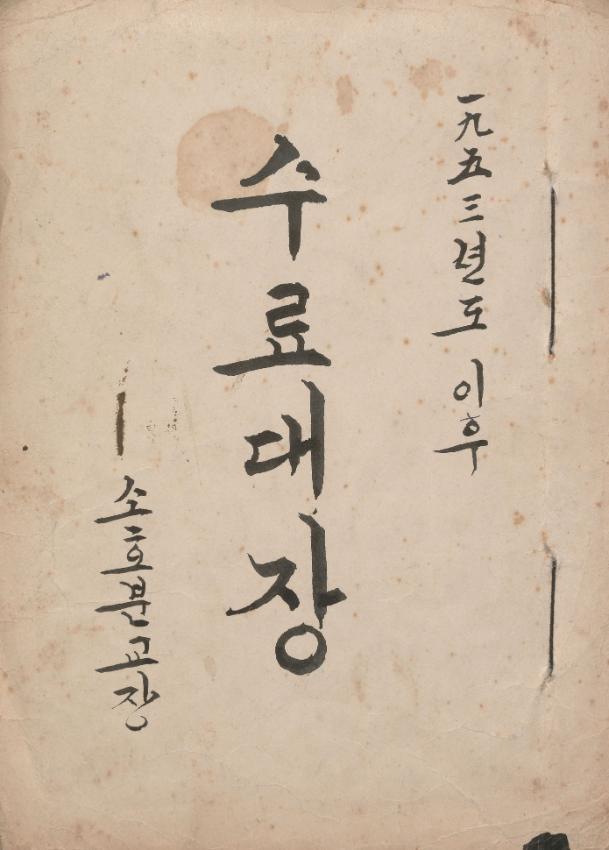 一九五三년도 이후
수료대장
소호분교장